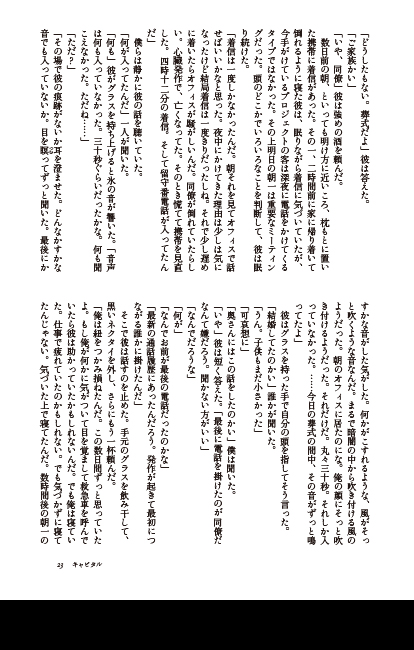 「どうしたもない。葬式だよ」彼は答えた。
「ご家族かい」
「いや、同僚」彼は強めの酒を頼んだ。
数日前の朝、といっても明け方に近いころ、枕もとに置い
た携帯に着信があった。その一、二時間前に家に帰り着いて
倒れるように寝た彼は、眠りながら着信に気づいていたが、
今手がけているプロジェクトの客は深夜に電話をかけてくる
タイプではなかった。その上明日の朝一は重要なミーティン
グだった。頭のどこかでいろいろなことを判断して、彼は眠
り続けた。
「着信は一度しかなかったんだ。朝それを見てオフィスで話
せばいいかなと思った。夜中にかけてきた理由は少しは気に
なったけど結局着信は一度きりだったしね。それで少し遅め
に着いたらオフィスが騒がしいんだ。同僚が倒れていたらし
い。心臓発作で、亡くなってた。そのとき慌てて携帯を見直
した。四時十二分の着信。そして留守番電話が入ってたん
だ」
僕らは静かに彼の話を聴いていた。
「何が入ってたんだ」一人が聞いた。
「何も」彼がグラスを持ち上げると氷の音が響いた。「音声
は何も入っていなかった。三十秒ぐらいだったかな。何も聞
こえなかった。ただね……」
「ただ？」
「その場で彼の痕跡がないか耳を澄ませた。どんなかすかな
音でも入っていないか。目を瞑ってずっと聞いた。最後にか
すかな音がした気がした。何かがこすれるような、風がそっ
と吹くような音なんだ。まるで暗闇の中から吹き付ける風の
ようだった。朝のオフィスに居たのにな。俺の顔にそっと吹
き付けるようだった。それだけだ。丸々三十秒。それしか入
っていなかった。……今日の葬式の間中、その音がずっと鳴
ってたよ」
彼はグラスを持った手で自分の頭を指してそう言った。
「結婚してたのかい」誰かが聞いた。
「うん。子供もまだ小さかった」
「可哀想に」
「奥さんにはこの話をしたのかい」僕は聞いた。
「いや」彼は短く答えた。「最後に電話を掛けたのが同僚だ
なんて嫌だろう。聞かない方がいい」
「なんでだろうな」
「何が」
「なんでお前が最後の電話だったのかな」
「最新の通話履歴にあったんだろう。発作が起きて最初につ
ながる誰かに掛けたんだ」
そこで彼は話すのを止めた。手元のグラスを飲み干して、
黒いネクタイを外し、さらにもう一杯頼んだ。
「俺は紐をつかみ損ねたんだ。この数日間ずっと思っていた
よ。もし俺が何かに気がついて目を覚まして救急車を呼んで
いたら彼は助かっていたかもしれないんだ。でも俺は寝てい
た。仕事で疲れていたのかもしれない。でも気づかずに寝て
たんじゃない。気づいた上で寝てたんだ。数時間後の朝一の
23 キャピタル